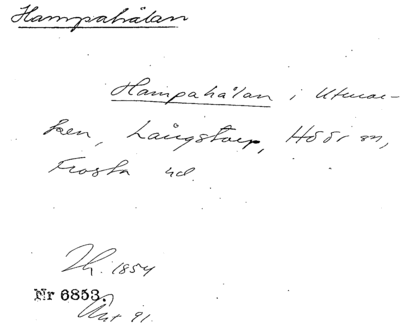 Hampahålan
Hampahålan i Utmar-
ken, Långstorp, Höör sn,
Frosta hd.
Th. 1854
Nr 6853.
91.